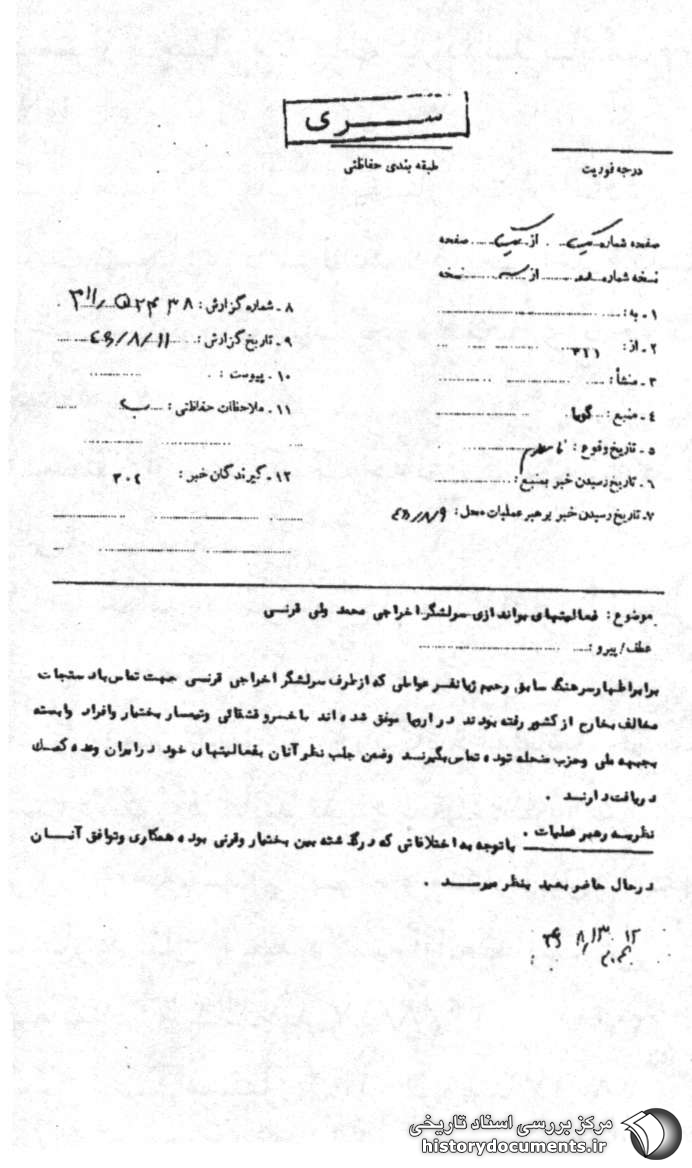 سری
طبقه بندی حفاظتی
درجه فوریت
صفحه شماره یک از یک صفحه
نسخه شماره از نسخه
۱ - به :
۲ - از : ۳۲۱
۳ - منشأ :
۴ - منبع : گویا
۵ - تاریخ وقوع :
۶ - تاریخ رسیدن خبر بمنبع :
۷ - تاریخ رسیدن خبر برهبر عملیات محل :
۸ - شماره گزارش :
۹ - تاریخ گزارش :
۱۰ - پیوست :
۱۱ - ملاحظات حفاظتی :
۱۲ - گیرندگان خبر : ۳۰۲
موضوع : فعالیتهای براندازی سرلشگر اخراجی محمد ولی قرنی
عطف / پیرو :
برابر اظهار سرهنگ سابق رحیم ژیانفر عواملی که از طرف سرلشگر اخراجی قرنی جهت تماس با دستجات
مخالف بخارج از کشور رفته بودند در اروپا موفق شده اند با خسرو قشقائی و تیمسار بختیار و افراد وابسته
بجبهه ملی و حزب منحله توده تماس بگیرند و ضمن جلب نظر آنان بفعالیتهای خود در ایران وعده کمک
دریافت دارند .
نظریه رهبر عملیات . با توجه به اختلافاتی که در گذشته بین بختیار و قرنی بوده همکاری و توافق آنان
در حال حاضر بعید بنظر میرسد .
مرکز بررسی اسناد تاریخی
historydocuments.ir